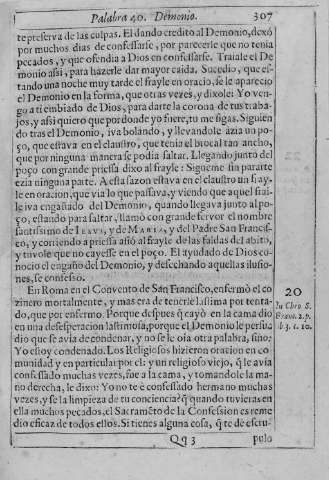 Palabra 40. Demonio. 307
te preserva de las culpas. El dando credito al Demonio, dexò
por muchos dias de confessarse, por parecerle que no tenia
pecados, y que ofendia a Dios en confessarse. Traiale el De
monio assi, para hazerle dar mayor caida. Sucediò, que es-
tando una noche muy tarde el frayle en oraciò, se le apareciò
el Demonio en la forma, que otras vezes, y dixole: Yo ven-
go a ti embiado de Dios, para darte la corona de tus traba-
jos, y assi quiero que por donde yo fuere, tu me sigas. Siguien
do tras el Demonio, iva bolando, y llevandole àzia un po-
ço, que estava en el claustro, que tenia el brocal tan ancho,
que por ninguna manera se podia saltar. Llegando junto del
poço con grande priessa dixo al frayle: Sigueme sin pararte
ezia ninguna parte. A esta sazon estava en el claustro un fray-
le en oracion, que via lo que passava, y viendo que aquel frai-
le iva engañado del Demonio, quando llegava junto al po-
ço, estando para saltar, llamò con grande fervor el nombre
santissimo de IESVS, y de MARIA, y del Padre San Francis-
co, y corriendo a priessa assiò al frayle de las faldas del abito,
y tuvole que no cayesse en el poço. El ayudado de Dios co-
nociò el engaño del Demonio, y desechando aquellas ilusio-
nes, se confessò.
En Roma en el Convento de San Francisco, enfermò el co
zinero mortalmente, y mas era de tenerle lastima por tenta-
do, que por enfermo. Porque despues q̃ cayò en la cama dio
en una desesperacion lastimosa, porque el Demonio le persua
diò que se avia de condenar, y no se le oia otra palabra, sino:
Yo estoy condenado. Los Religiosos hizieron oracion en co-
munidad y en particular por el: y un religioso viejo, q̃ le avia
confessado muchas vezes, fue a la cama, y tomandole la ma-
no derecha, le dixo: Yo no te è confessado hermano muchas
vezes, y se la limpieza de tu conciencia? q̃ quando tuvieras en
ella muchos pecados, el Sacramẽto de la Confession es reme
dio eficaz de todos ellos. Si tienes alguna cosa, q̃ te dè escru-
Qq 3 pulo
20
In Chro. S.
Franc. 2. p.